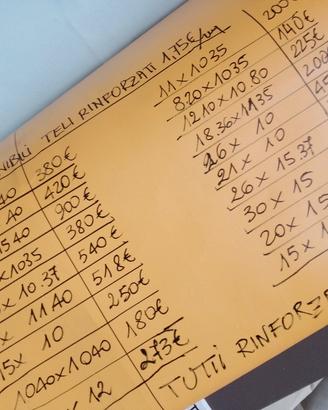 NIBILI TELI RINFORZATI 1,75€/mq
40 380€
40 420€
1540 900€
x1035 380€
x 10.37 540€
x 1140 518€
15x 10 250€
1040x1040 180€
x 12 273€
11x1035 200
820x1035 140€
1210x10.80 225€
18.36x1135 200
26x 10
21x 10
26x 15.37
30x 15
20x 15
15x 1
TUTTI RINFORZ